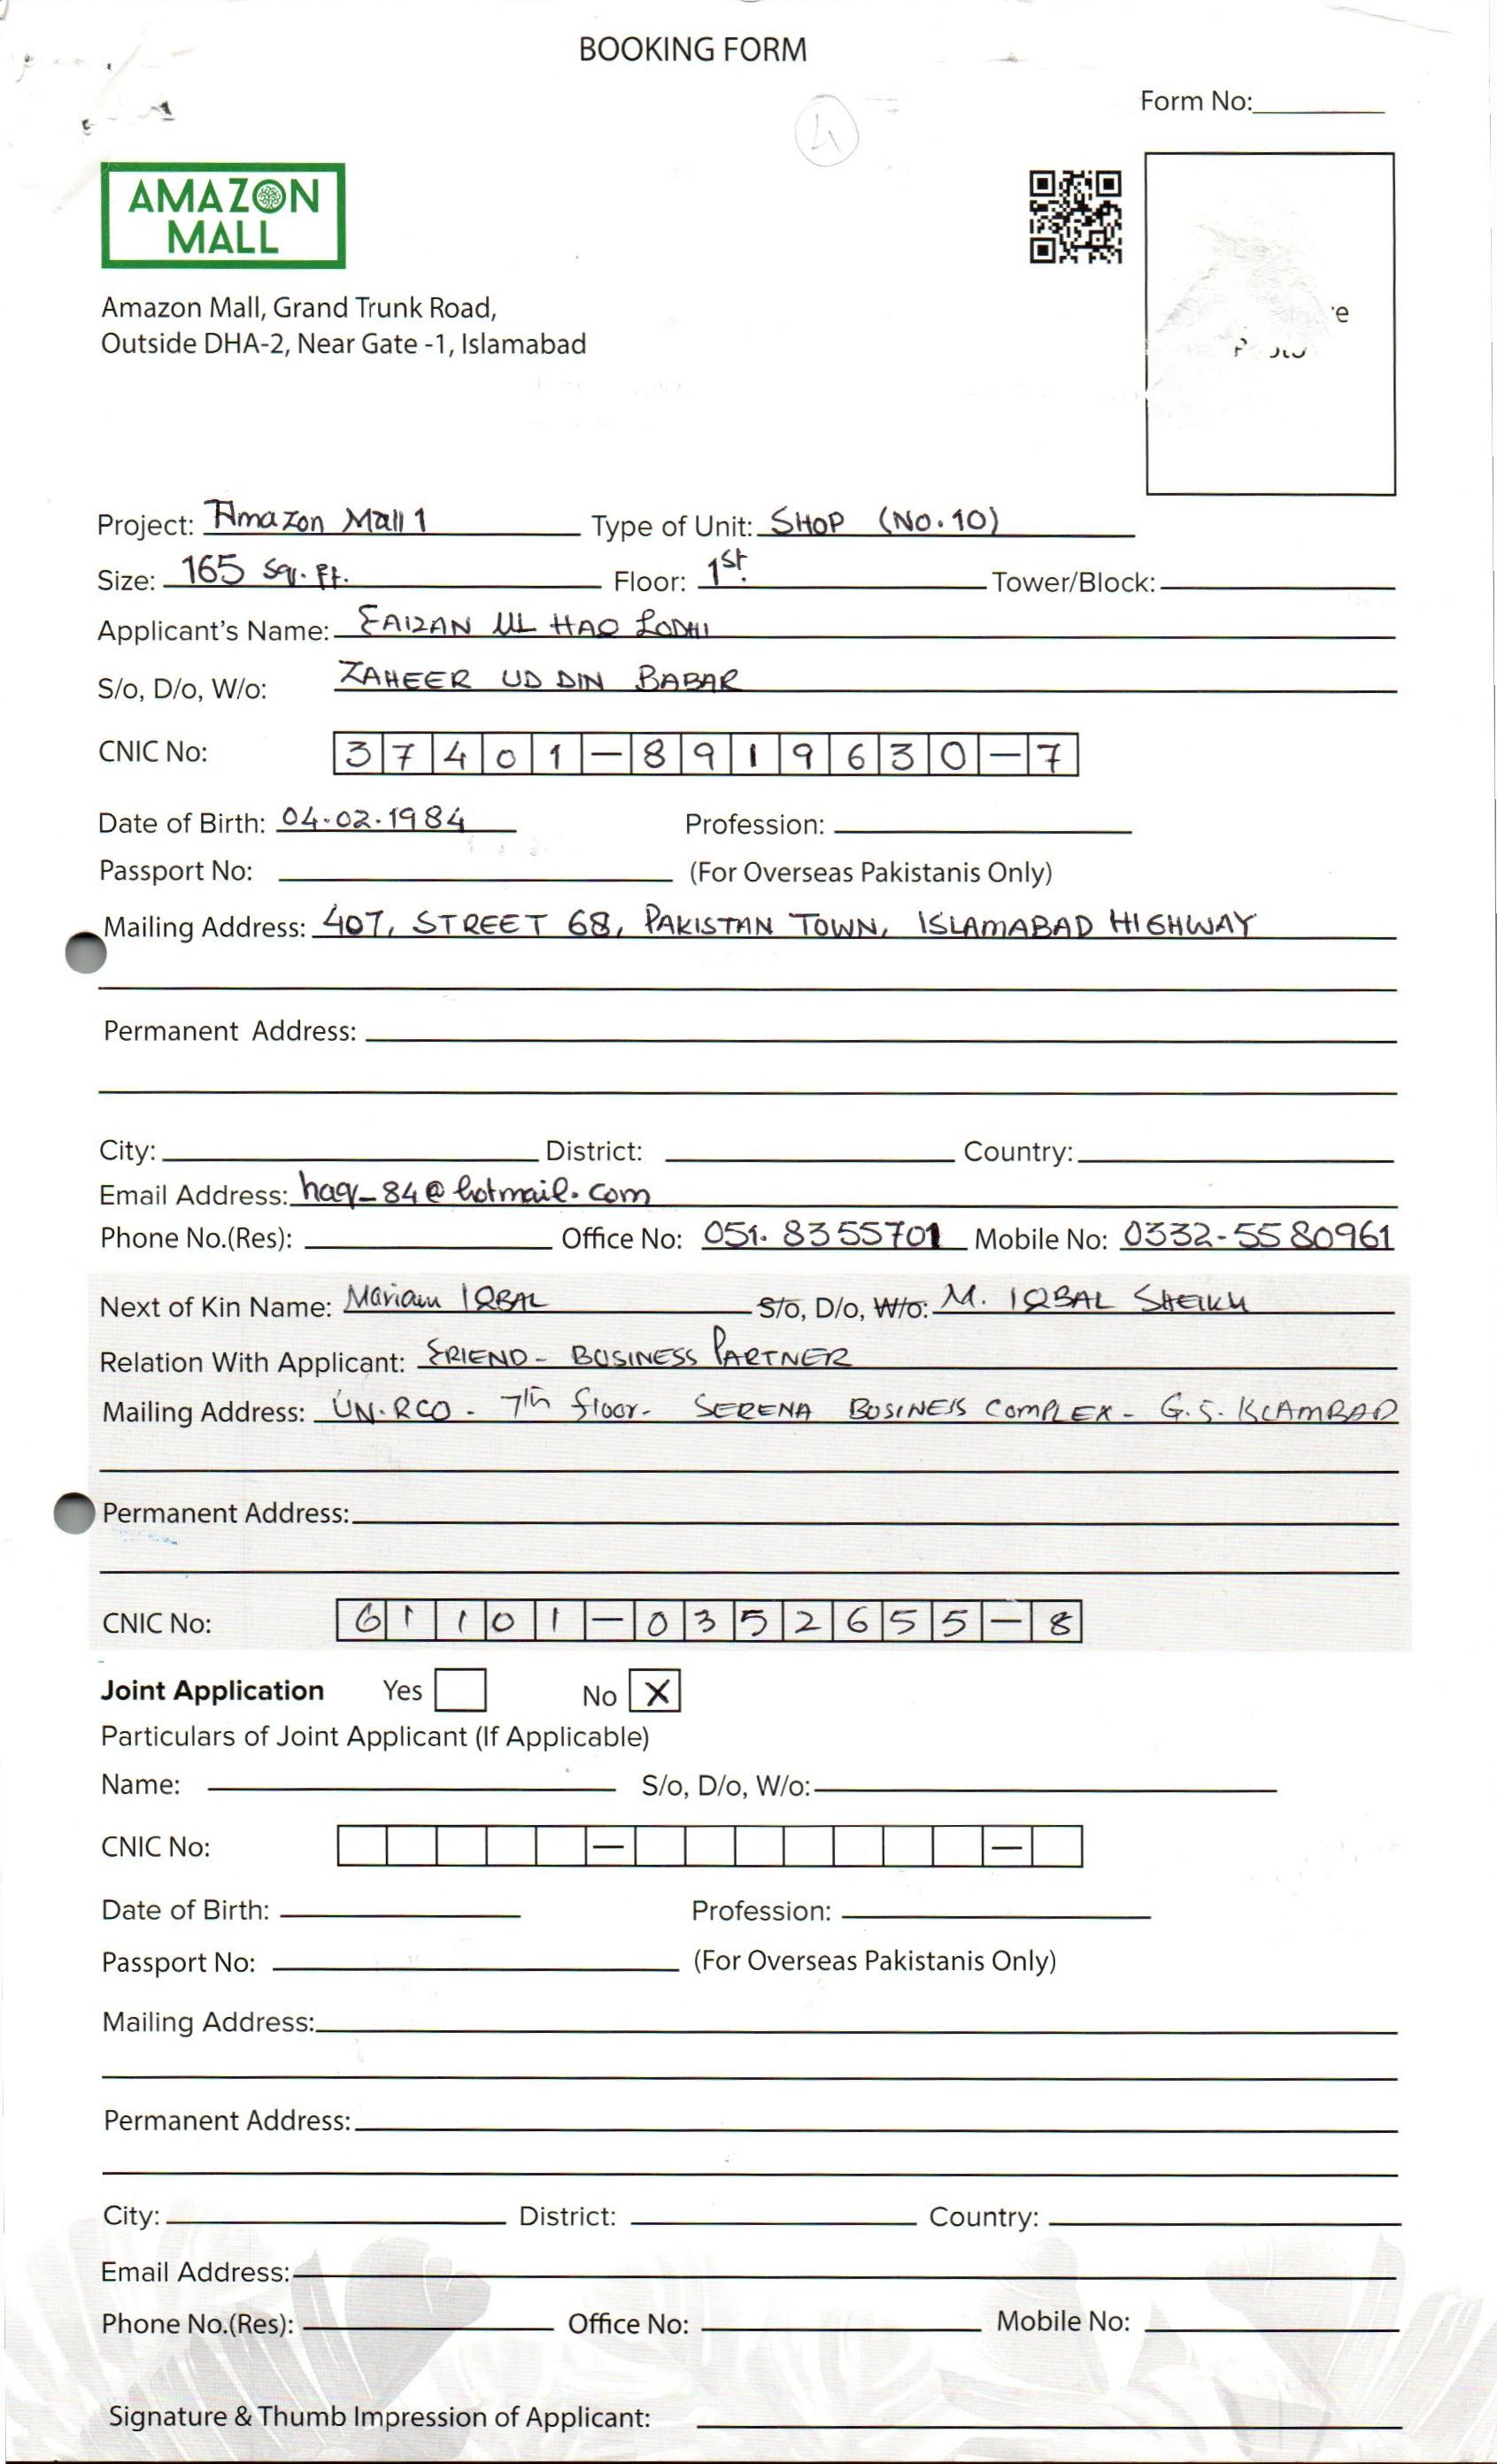 BOOKING FORM
Form No:
4
AMAZON
MALL
Amazon Mall, Grand Trunk Road,
Outside DHA-2, Near Gate -1, Islamabad
Project: Amazon Mall 1 Type of Unit: SHOP (No. 10)
Size: 165 Sq. Ft. Floor: 1st Tower/Block:
Applicant's Name: FAIZAN UL HAQ LODHI
S/o, D/o, W/o: ZAHEER UD DIN BABAR
CNIC No: 37401-8919630-7
Date of Birth: 04.02.1984 Profession:
Passport No: (For Overseas Pakistanis Only)
Mailing Address: 407, STREET 68, PAKISTAN TOWN, ISLAMABAD HIGHWAY
Permanent Address:
City: District: Country:
Email Address: haq_84@hotmail.com
Phone No.(Res): Office No: 051.8355701 Mobile No: 0332-5580961
Next of Kin Name: Mariam IQBAL S/o, D/o, W/o: M. IQBAL SHEIKH
Relation With Applicant: FRIEND - BUSINESS PARTNER
Mailing Address: UN-RCO - 7th floor - SERENA BUSINESS COMPLEX - G.5. ISLAMABAD
Permanent Address:
CNIC No: 61101-0352655-8
Joint Application Yes No X
Particulars of Joint Applicant (If Applicable)
Name: S/o, D/o, W/o:
CNIC No: — —
Date of Birth: Profession:
Passport No: (For Overseas Pakistanis Only)
Mailing Address:
Permanent Address:
City: District: Country:
Email Address:
Phone No.(Res): Office No: Mobile No:
Signature & Thumb Impression of Applicant: